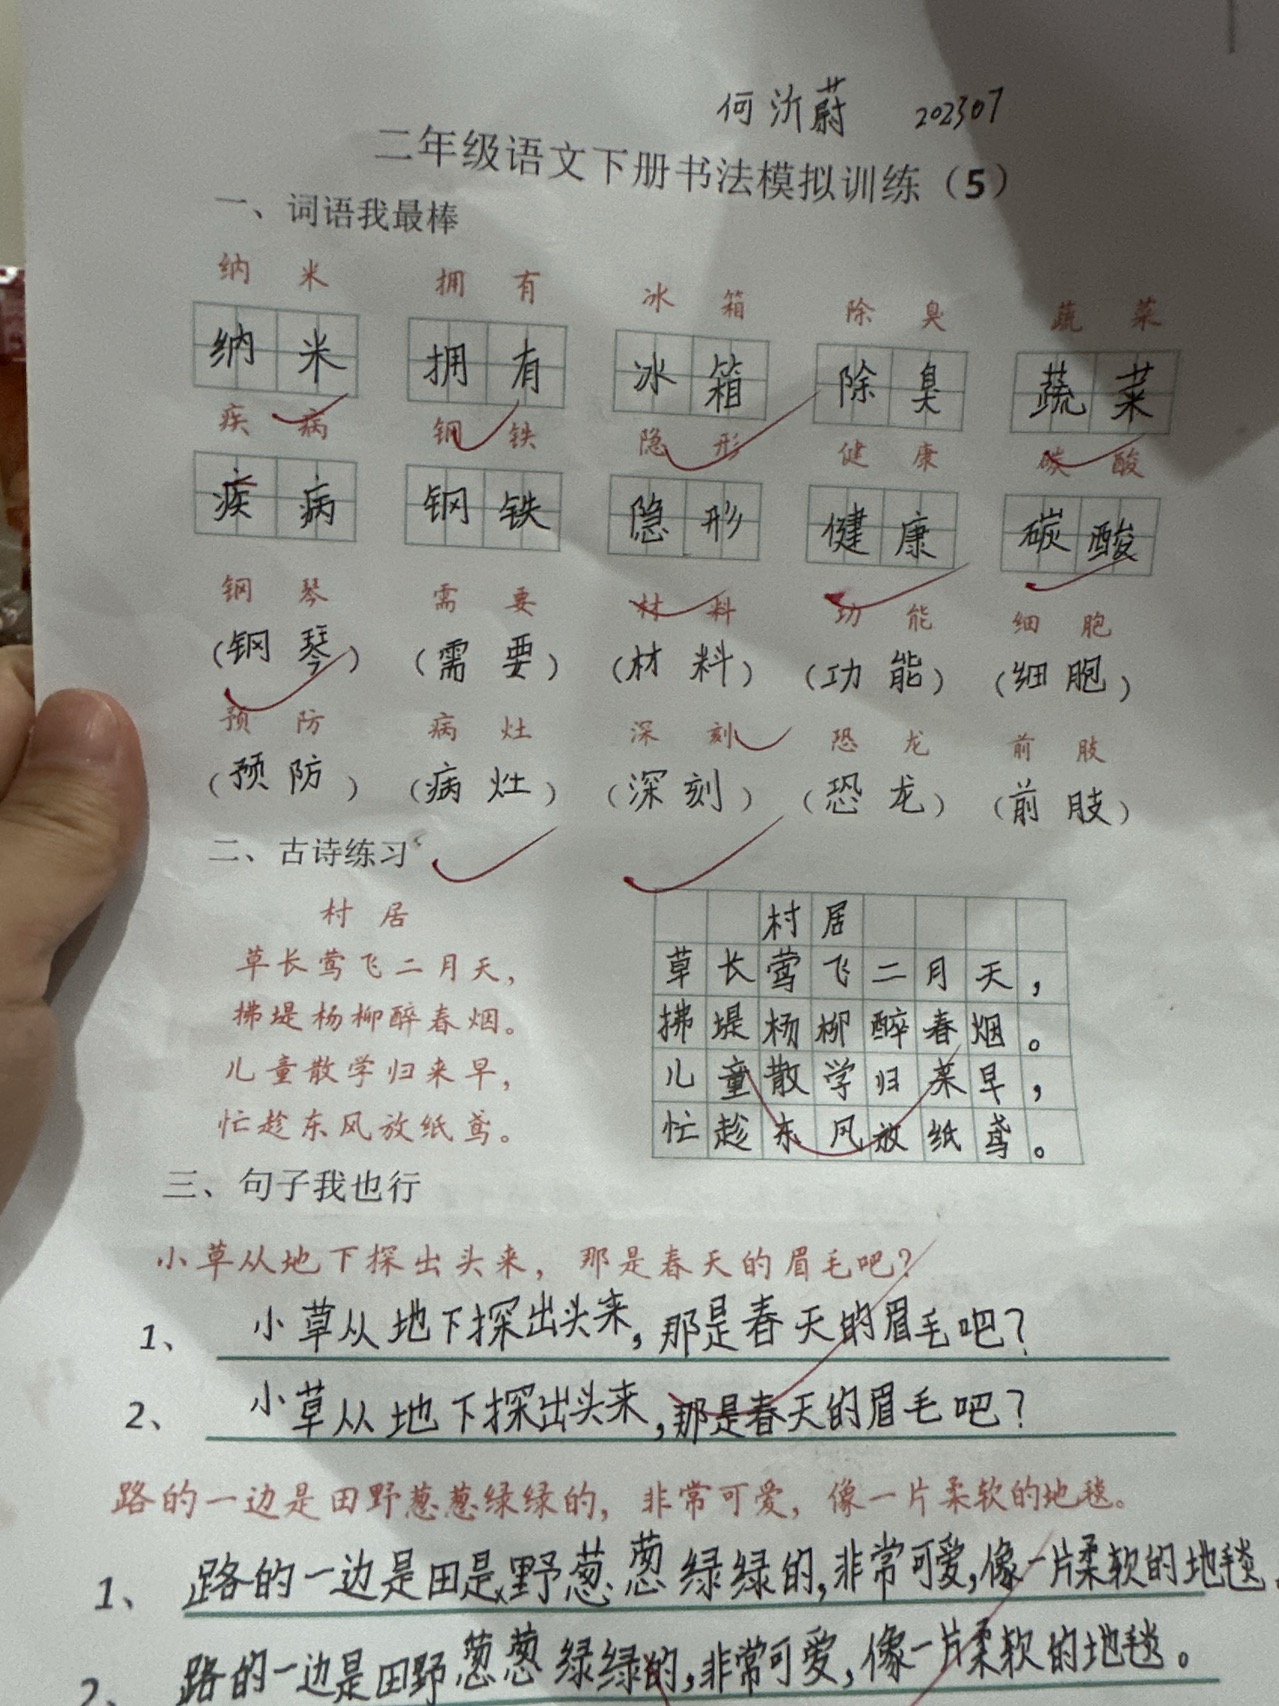 何沂蔚 202307
二年级语文下册书法模拟训练（5）
一、词语我最棒
纳米 拥有 冰箱 除臭 蔬菜
纳米 拥有 冰箱 除臭 蔬菜
疾病 钢铁 隐形 健康 碳酸
疾病 钢铁 隐形 健康 碳酸
钢琴 需要 材料 功能 细胞
(钢琴) (需要) (材料) (功能) (细胞)
预防 病灶 深刻 恐龙 前肢
(预防) (病灶) (深刻) (恐龙) (前肢)
二、古诗练习
村居
草长莺飞二月天，
拂堤杨柳醉春烟。
儿童散学归来早，
忙趁东风放纸鸢。
村居
草长莺飞二月天，
拂堤杨柳醉春烟。
儿童散学归来早，
忙趁东风放纸鸢。
三、句子我也行
小草从地下探出头来，那是春天的眉毛吧？
1、小草从地下探出头来，那是春天的眉毛吧？
2、小草从地下探出头来，那是春天的眉毛吧？
路的一边是田野葱葱绿绿的，非常可爱，像一片柔软的地毯。
1、路的一边是田是野葱葱绿绿的，非常可爱，像一片柔软的地毯.
2、路的一边是田野葱葱绿绿的，非常可爱，像一片柔软的地毯。